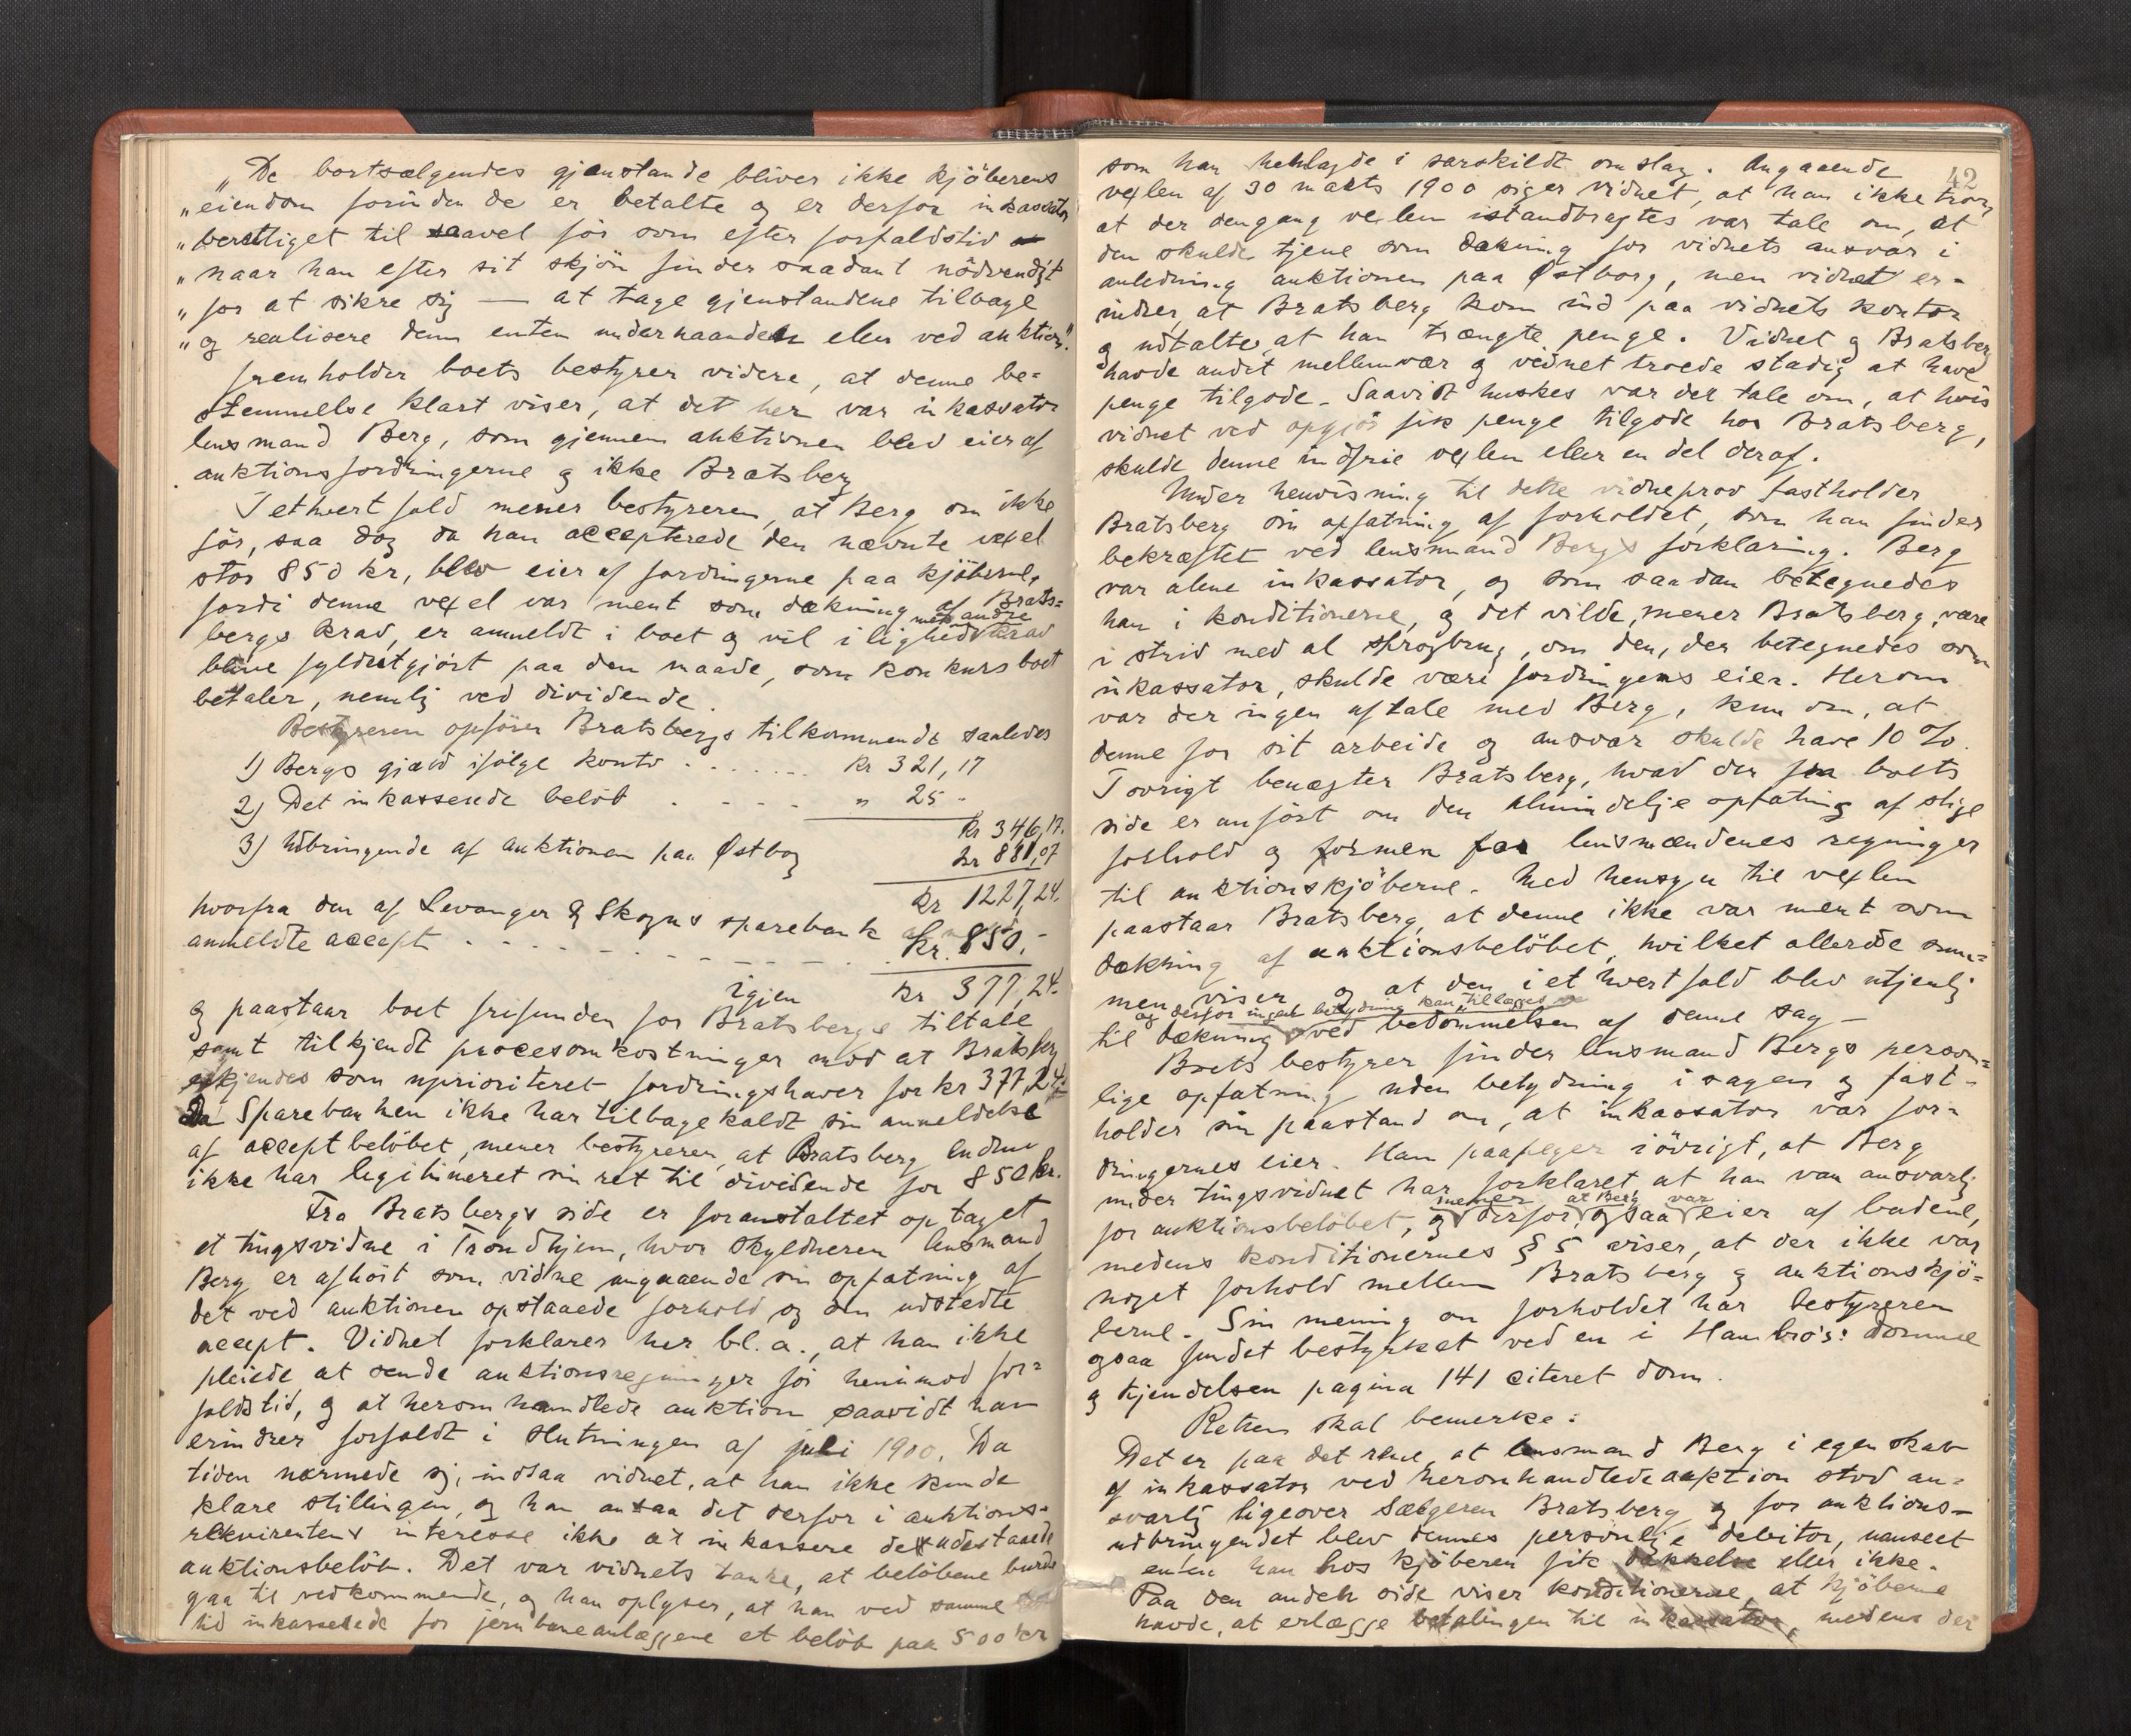 „De bortsælgendes gjenstande bliver ikke kjöberens
„eiendom forinden de er betalte og er derfor inkassator
„berettiget til saavel för som efter forfaldstid
„naar han efter sit skjön finder saadant nödvendigt
„for at sikre sig — at tage gjenstandene tilbage
„og realisere dem enten underhaanden eller ved auktion".
fremholder boets bestyrer videre, at denne be=
stemmelse klart viser, at det her var inkassator
lensmand Berg, som gjennem auktionen blev eier af
auktionsfordringerne og ikke Bratsberg
I ethvert fald mener bestyreren, at Berg om ikke
för, saa dog da han accepterede den nævnte vexel
stor 850 kr, blev eier af fordringerne paa kjöberne,
fordi denne vexel var ment som dækning af Brats=
bergs krav, er anmeldt i boet og vil i lighed med andre krav
blive fyldestgjört paa den maade, som konkursboet
betaler, nemlig ved dividende.
Bestyreren opförer Bratsbergs tilkommende saaledes
1) Bergs gjæld ifölge konto ....... kr 321,17
2) Det inkasserede belöb . - - - - „ 25 -
kr 346,17.
3) Udbringende af auktionen paa Østborg kr 881,07
kr 1227,24.
hvorfra den af Levanger & Skogns sparebank
anmeldte accept . - - - - - - - - kr. 850.-
igjen kr 377,24.
og paastaar boet frifunden for Bratsbergs tiltale
samt tilkjendt procesomkostninger mod at Bratsberg
erkjendes som uprioriteret fordringshaver for kr 377,24.
Da Sparebanken ikke har tilbagekaldt sin anmeldelse
af acceptbelöbet, mener bestyreren, at Bratsberg endnu
ikke har legitimeret sin ret til dividende for 850 kr.
Fra Bratsbergs side er foranstaltet optaget
et tingsvidne i Trondhjem, hvor skyldneren lensmand
Berg er afhört som vidne angaaende sin opfatning af
det ved auktionen opstaaede forhold og om udstedte
accept. Vidnet forklarer her bl. a., at han ikke
pleiede at sende auktionsregninger för henimod for=
faldstid, og at heromhandlede auktion saavidt han
erindrer forfaldt i slutningen af juli 1900. Da
tiden nærmede sig, indsaa vidnet, at han ikke kunde
klare stillingen, og han ansaa det derfor i auktions=
rekvirentens interesse ikke at inkassere det udestaaede
auktionsbelöb. Det var vidnets tanke, at belöbene burde
gaa til vedkommende, og han oplyser, at han ved samme
tid inkasserede for jernbaneanlæggene et belöb paa 500 kr
42
som han henlagde i særskildt omslag. Angaaende
vexlen af 30 marts 1900 siger vidnet, at han ikke tror,
at der dengang vexlen istandbragtes var tale om, at
den skulde tjene som dækning for vidnets ansvar i
anledning auktionen paa Østborg, men vidnet er=
indrer, at Bratsberg kom ind paa vidnets kontor
og udtalte, at han trængte penge. Vidnet og Bratsberg
havde andet mellemvær og vidnet troede stadig at have
penge tilgode. Saavidt huskes var der tale om, at hvis
vidnet ved opgjör fik penge tilgode hos Bratsberg,
skulde denne indfrie vexlen eller en del deraf.
Under henvisning til dette vidneprov fastholder
Bratsberg sin opfatning af forholdet, som han finder
bekræftet ved lensmand Bergs forklaring. Berg
var alene inkassator, og som saadan betegnedes
han i konditionerne, og det vilde, mener Bratsberg, være
i strid med al sprogbrug, om den, der betegnedes som
inkassator, skulde være fordringens eier. Herom
var der ingen aftale med Berg, kun om, at
denne for sit arbeide og ansvar skulde have 10 %.
I övrigt benægter Bratsberg, hvad der fra boets
side er anfört om den almindelige opfatning af slige
forhold og formen for lensmændenes regninger
til auktionskjöberne. Med hensyn til vexlen
paastaar Bratsberg, at denne ikke var ment som
dækning af auktionsbelöbet, hvilket allerede sum=
men viser, og at den i et hvert fald blev utjenlig
til dækning og derfor ingen betydning kan tillægges ved bedömmelsen af denne sag —
Boets bestyrer finder lensmand Bergs person=
lige opfatning uden betydning i sagen og fast=
holder sin paastand om, at inkassator var for=
dringernes eier. Han paapeger iövrigt, at Berg
under tingsvidnet har forklaret at han var ansvarlig
for auktionsbelöbet, og mener at Berg derfor ogsaa var eier af budene,
medens konditionernes § 5 viser, at der ikke var
noget forhold mellem Bratsberg og auktionskjö=
berne. Sin mening om forholdet har bestyreren
ogsaa fundet bestyrket ved en i Hambro's: domme
og kjendelsen pagina 141 citeret dom.
Retten skal bemerke:
Det er paa det rene, at lensmand Berg i egenskab
af inkassator ved heromhandlede auktion stod an=
svarlig ligeover sælgeren Bratsberg og for auktions=
udbringendet blev dennes personlige debitor, uanseet
enten han hos kjöberen fik dækkelse eller ikke.
Paa den anden side viser konditionerne, at kjöberne
havde, at erlægge betalingen til inkassator, medens der